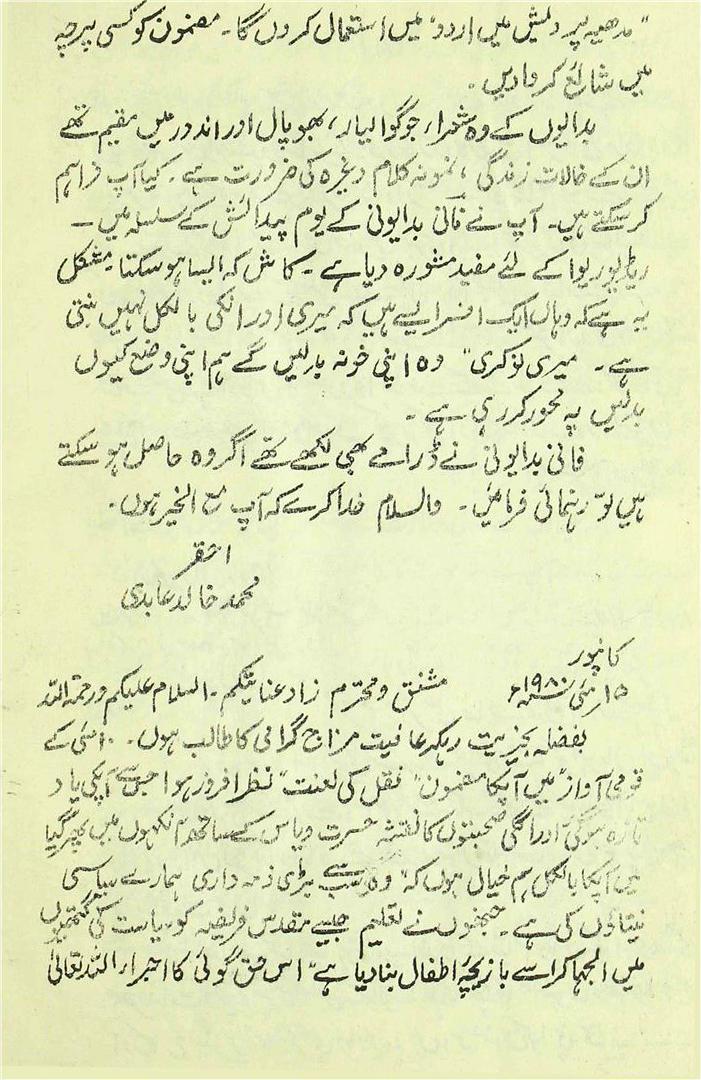 "مدھیہ پردیش میں اردو" میں استعمال کروں گا۔ مضمون کو کسی پرچہ
میں شائع کروا دیں۔
بدایوں کے وہ شعراء، جو گوالیار، بھوپال اور اندور میں مقیم تھے
ان کے حالات زندگی، نمونہ کلام وغیرہ کی ضرورت ہے۔ کیا آپ فراہم
کر سکتے ہیں۔ آپ نے فانی بدایونی کے یوم پیدائش کے سلسلہ میں۔
ریڈیو ریوا کے لئے مفید مشورہ دیا ہے۔ کاش کہ ایسا ہو سکتا۔ مشکل
یہ ہے کہ وہاں ایک افسر ایسے ہیں کہ میری اور انکی بالکل نہیں بنتی
ہے۔ میری نوکری "وہ اپنی خو نہ بدلیں گے ہم اپنی وضع کیوں
بدلیں پہ مجبور کر رہی ہے۔
فانی بدایونی نے ڈرامے بھی لکھے تھے اگر وہ حاصل ہو سکتے
ہیں تو رہنمائی فرمائیں۔ والسلام خدا کرے کہ آپ مع الخیر ہوں۔
احقر
محمد خالد عابدی
کانپور
۱۵ مئی ۱۹۸۰ء مشفق و محترم زاد عنایتکم۔ السلام علیکم ورحمۃ اللہ
بفضلہ بخیریت رہکر عافیت مزاج گرامی کا طالب ہوں۔ ۱۰ مئی کے
قومی آواز میں آپکا مضمون "نقل کی لعنت" نظر افروز ہوا جس سے آپکی یاد
تازہ ہوگئی اور اگلی صحبتوں کا نقشہ حسرت و یاس کے ساتھ آنکھوں میں پھر گیا
میں آپکا بالکل ہم خیال ہوں کہ "وہ سب سے بڑی ذمہ داری ہمارے سیاسی
نیتاؤں کی ہے۔ جنھوں نے تعلیم جیسے مقدس فریضہ کو سیاست کی گتھیوں
میں الجھا کر اسے بازیچۂ اطفال بنا دیا ہے" اس حق گوئی کا اجر اللہ تعالیٰ